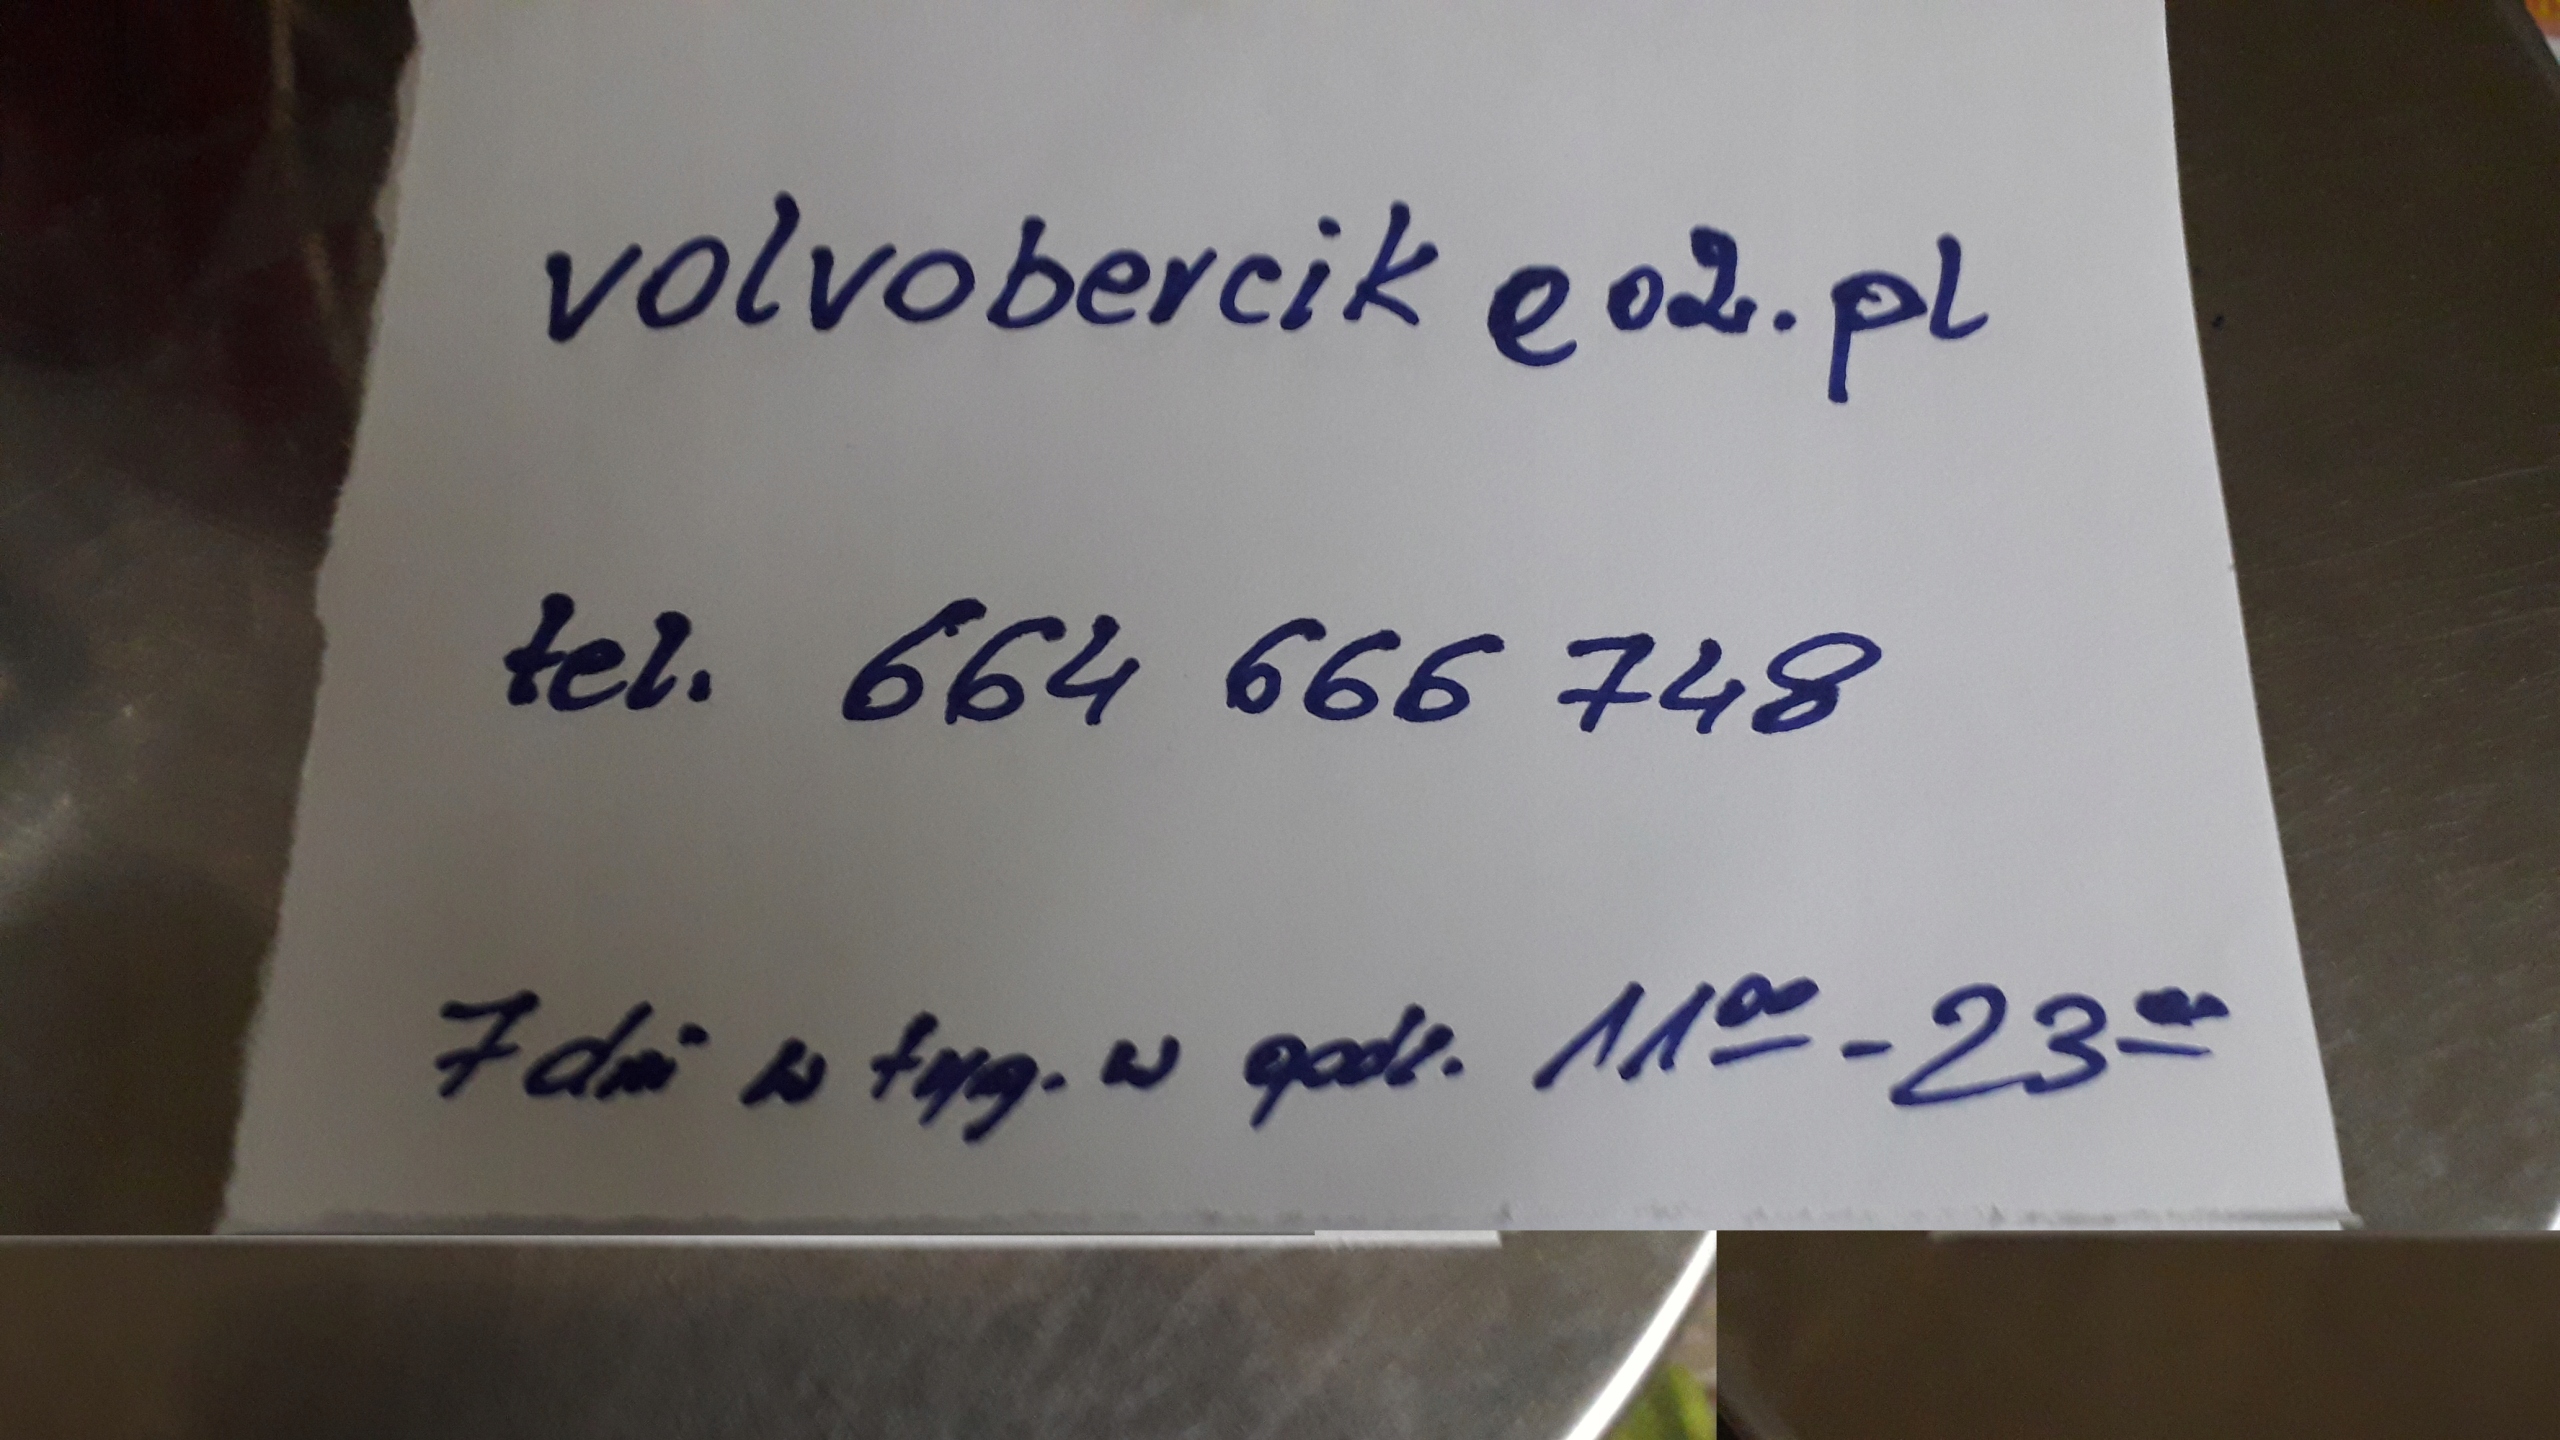 volvobercik@o2.pl
tel. 664 666 748
7 dni w tyg. w godz. 11⁰⁰-23⁰⁰